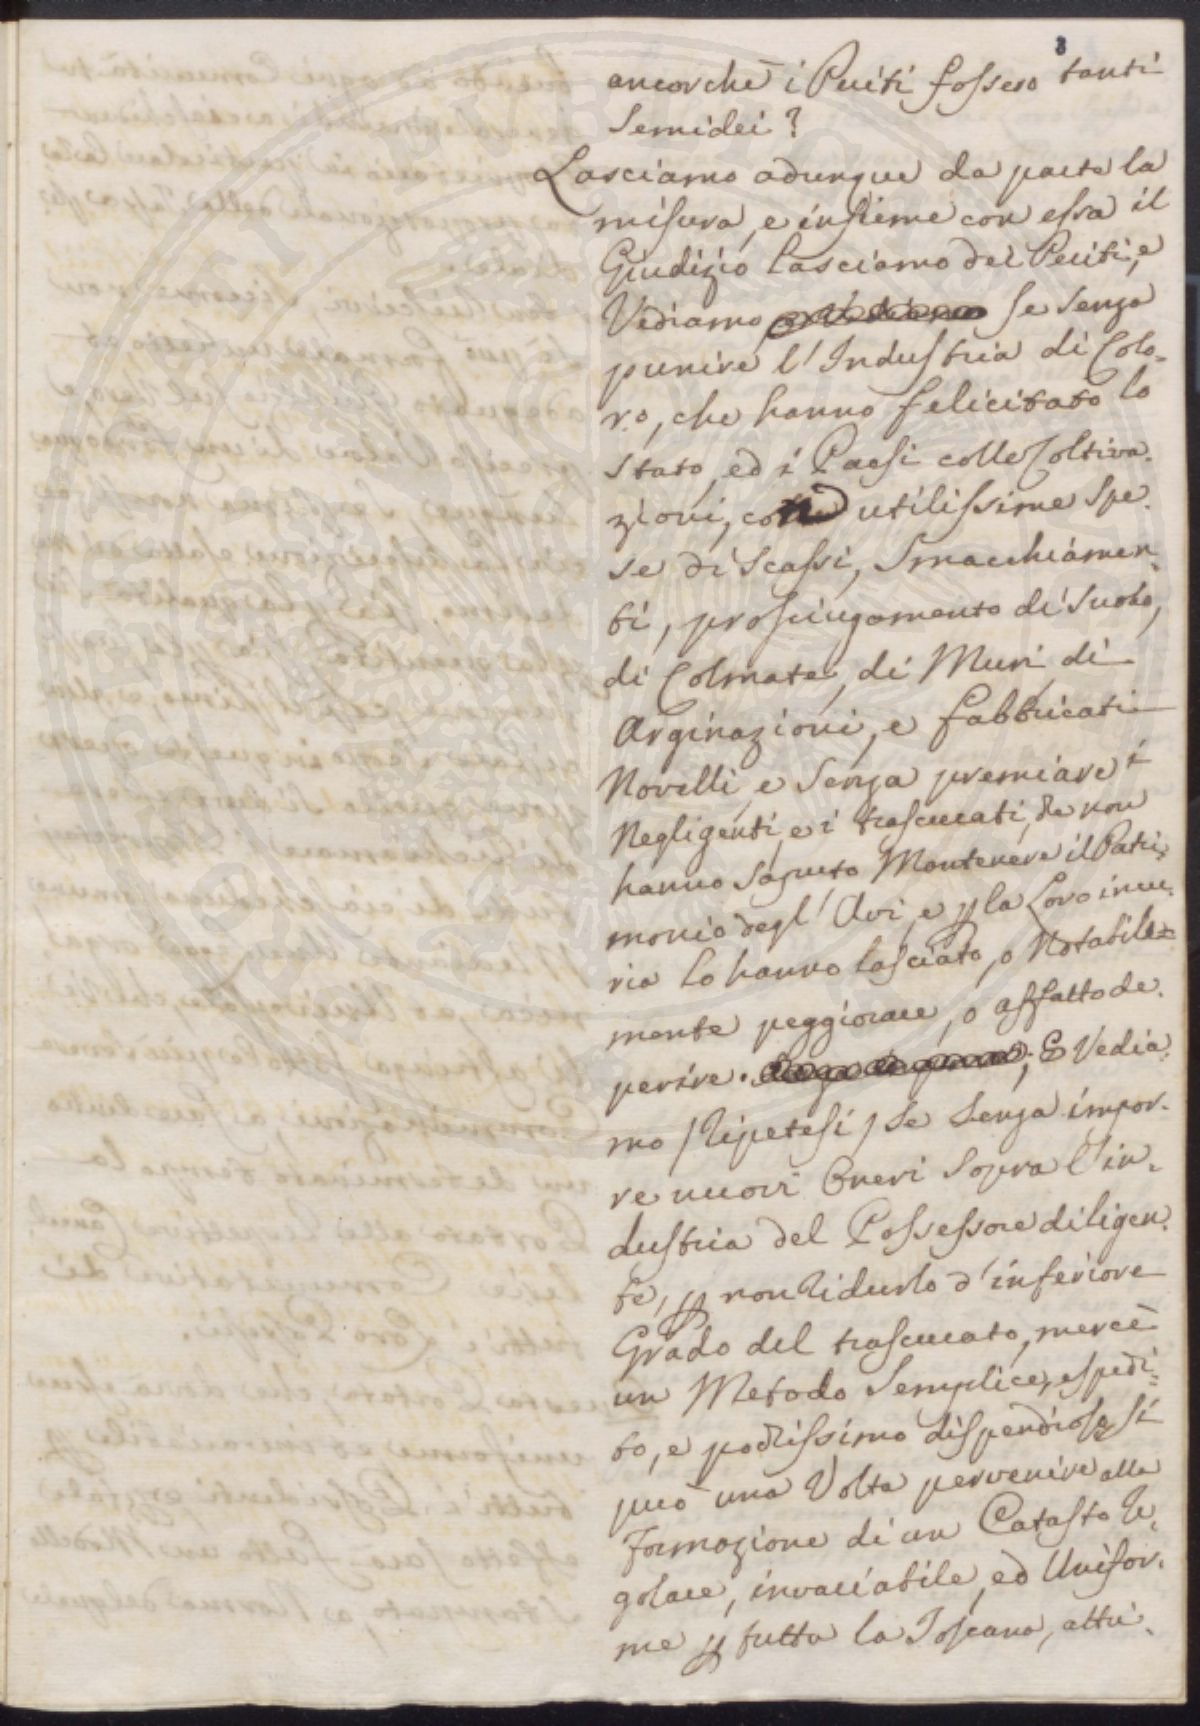 3
ancorchè i Periti fossero tanti
Semidei?
Lasciamo adunque da parte la
misura, e insieme con essa il
Giudizio lasciamo dei Periti, e
Vediamo se senza
punire l'Industria di Colo-
ro, che hanno felicitato lo
Stato, ed i Paesi colle Coltiva-
zioni, con utilissime Spe-
se di Scassi, Smacchiamen-
ti, prosciugamento di Suolo,
di Colmate, di Muri, di
Arginazioni, e Fabbricati
Novelli, e Senza premiare i
Negligenti, e i trascurati, che non
hanno Saputo Mantenere il Patri-
monio degl'Avi, e p la Loro incu-
ria Lo hanno lasciato, o Notabil-
mente peggiorare, o affatto de-
perire. ; E Vedia-
mo /Ripetesi/ Se Senza impor-
re nuovi Oneri Sopra l'in-
dustria del Possessore diligen-
te, p non Ridurlo d'inferiore
Grado del trascurato, mercè
un Metodo Semplice, espedi-
to, e pochissimo dispendioso, si
può una Volta pervenire alla
Formazione di un Catasto Re-
golare, invariabile, ed Unifor-
me p tutta la Toscana, attri-